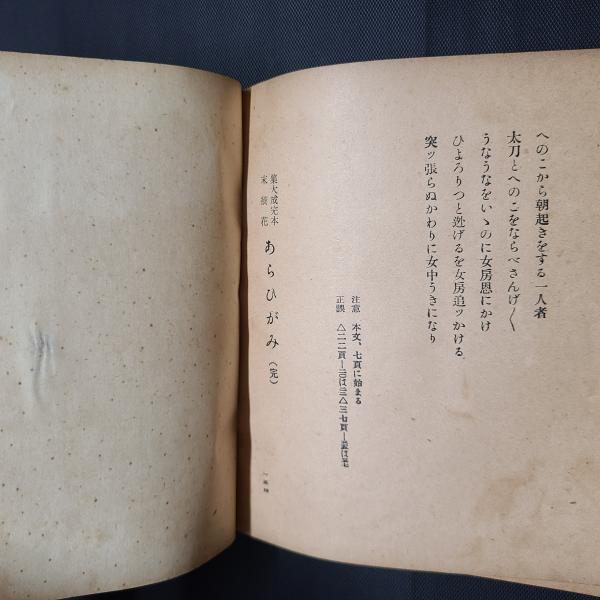 へのこから朝起きをする一人者
太刀とへのこをならべさんげ〳〵
うなうなをいゝのに女房恩にかけ
ひよろりつと逃げるを女房追ッかける
突ッ張らぬかわりに女中うきになり
注意 本文、七頁に始まる
正誤 △二二頁
集大成完本
末摘花
あらひがみ
(完)